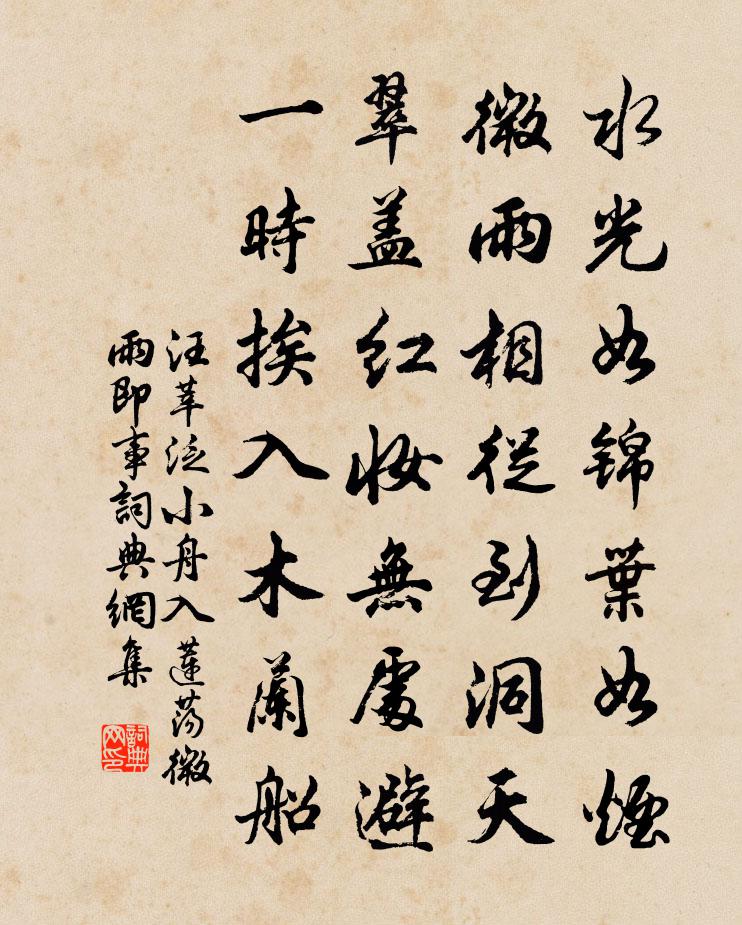 水光如錦葉如煙
微雨相從到洞天
翠盖紅妝無處避
一時挨入木蘭船
汪莘泛小舟入蓮蕩微
雨即事詞典網集
詞典网印